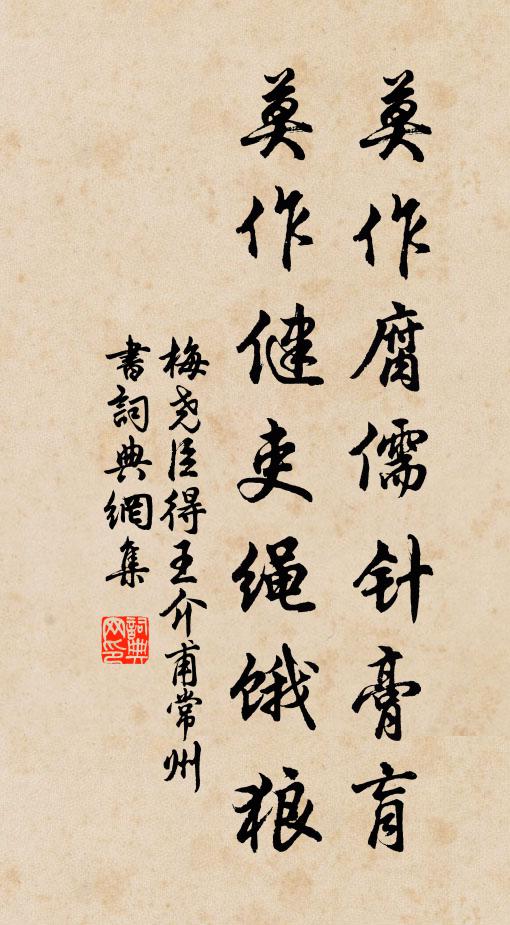 莫作腐儒针膏肓
莫作健吏绳饿狼
梅尧臣得王介甫常州
書詞典網集
詞典网印